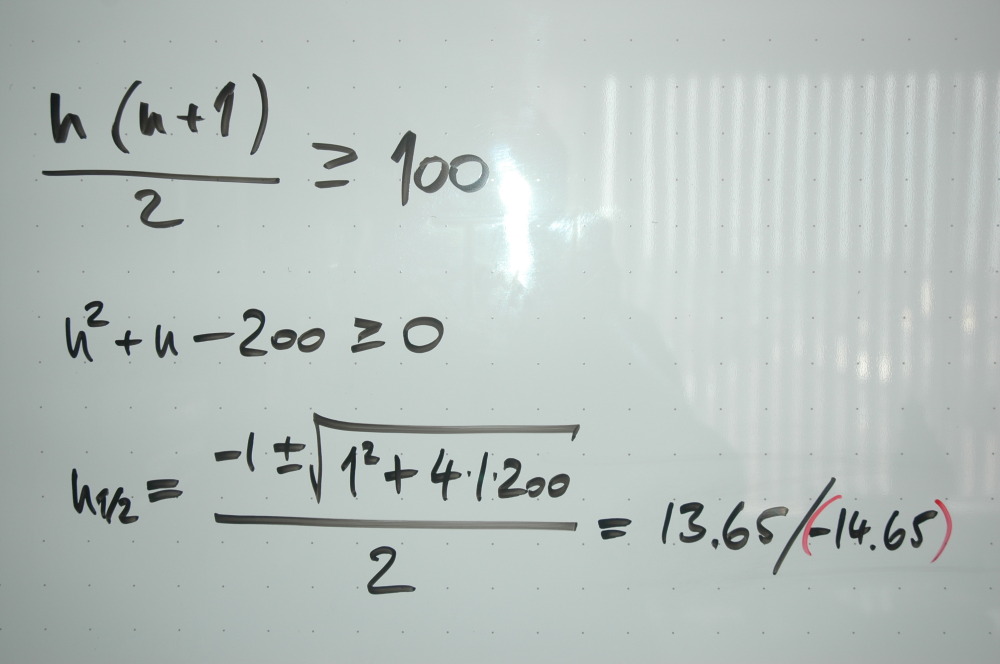 n(n+1)/2 ≥ 100
n² + n − 200 ≥ 0
n1/2 = (−1 ± √(1² + 4·1·200))/2 = 13.65/(−14.65)